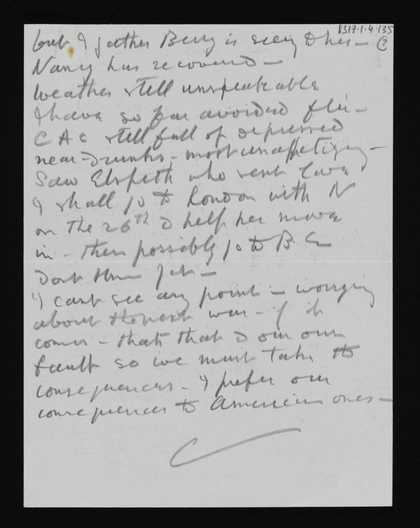 B317-1-4-135
C
but I gather Berry is seeing to her —
Nancy has recovered —
Weather still unspeakable
I have so far avoided flu —
C A C still full of depressed
near-drunks — most unappetizing —
Saw Elspeth who sent love
I shall go to London with N
on the 26th to help her move
in — then possibly go to B E
Dont know yet —
I cant see any point in worrying
about the next war — if it
comes — thats that & our own
fault so we must take the
consequences — I prefer our
consequences to American ones —
C